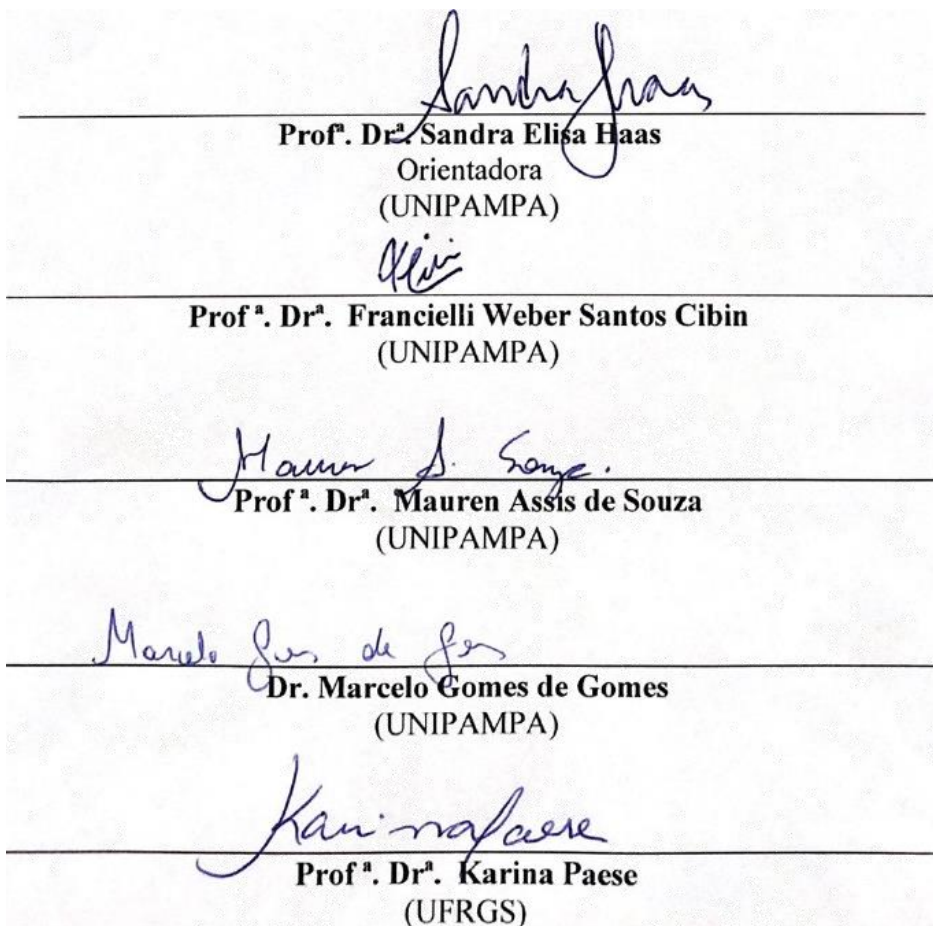 Sandra Haas
Profª. Drª. Sandra Elisa Haas
Orientadora
(UNIPAMPA)
Prof ª. Drª. Francielli Weber Santos Cibin
(UNIPAMPA)
Mauren A. Souza.
Prof ª. Drª. Mauren Assis de Souza
(UNIPAMPA)
Marcelo Gomes de Gomes
Dr. Marcelo Gomes de Gomes
(UNIPAMPA)
Karina Paese
Prof ª. Drª. Karina Paese
(UFRGS)